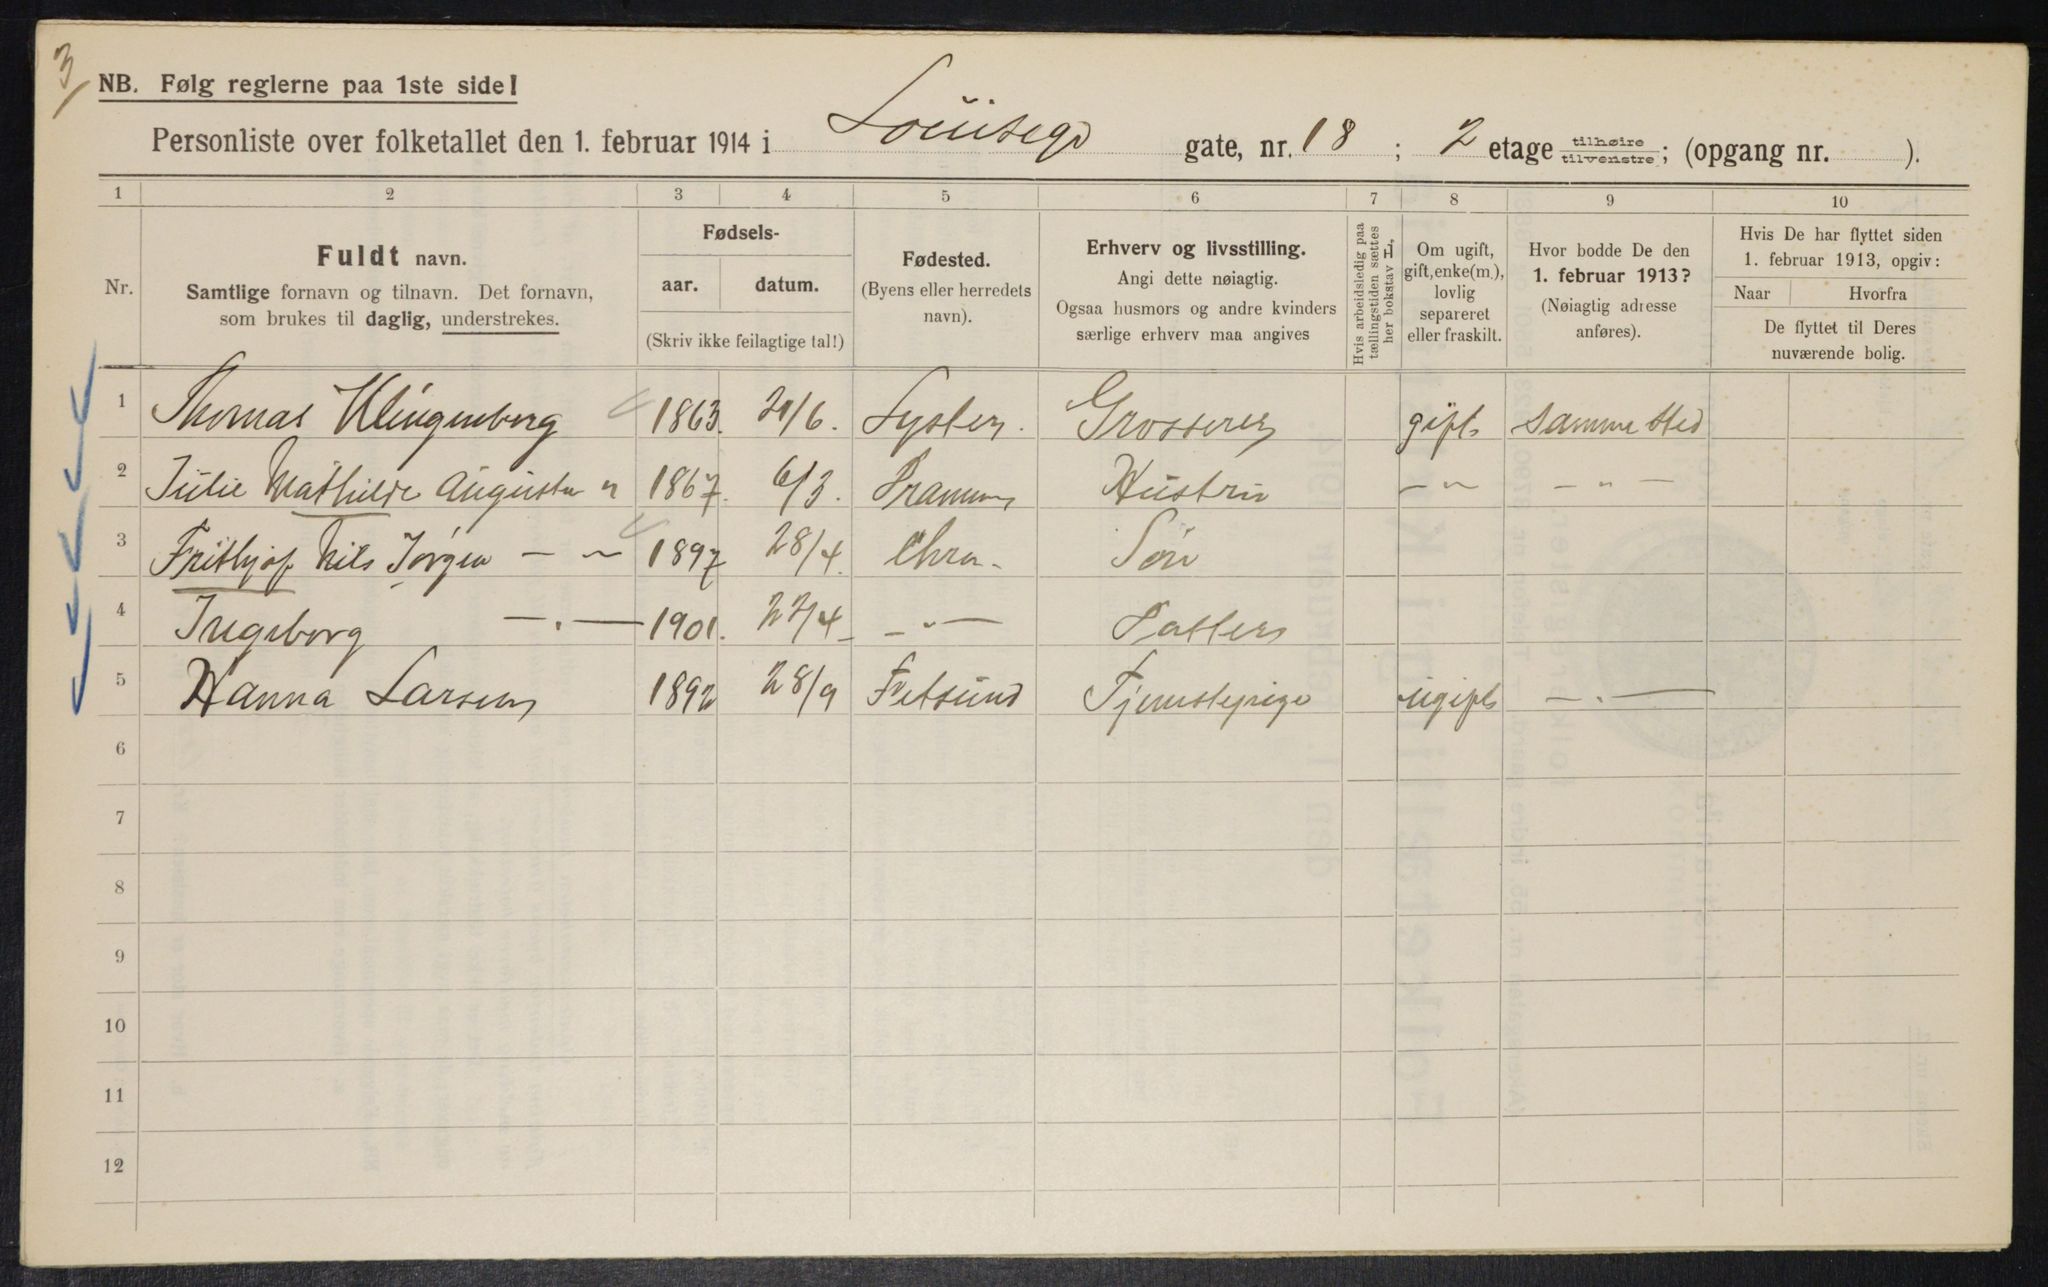 3
NB. Følg reglerne paa 1ste side!
Personliste over folketallet den 1. februar 1914 i Louisegd gate, nr. 18 ; 2 etage tilhøire tilvenstre ; (opgang nr. ).
1 2 3 4 5 6 7 8 9 10
Nr.
Fuldt navn.
Samtlige fornavn og tilnavn. Det fornavn,
som brukes til daglig, understrekes.
Fødsels-
aar. datum.
(Skriv ikke feilagtige tal!)
Fødested.
(Byens eller herredets
navn).
Erhverv og livsstilling.
Angi dette nøiagtig.
Ogsaa husmors og andre kvinders
særlige erhverv maa angives
Hvis arbeidsledig paa
tællingstiden sættes
her bokstav L.
Om ugift,
gift, enke(m.),
lovlig
separeret
eller fraskilt.
Hvor bodde De den
1. februar 1913?
(Nøiagtig adresse
anføres).
Hvis De har flyttet siden
1. februar 1913, opgiv:
Naar Hvorfra
De flyttet til Deres
nuværende bolig.
1 Thomas Klingenberg 1863. /6. Lyster. Grosserer gift samme sted
2 Julie Mathilde Augusta " 1867. 6/3. Drammen Hustru - " - - " -
3 Frithjof Nils Jørgen - " 1897 28/4. Chra. Søn
4 Ingeborg - " - 1901. 22/4 - " - Datter
5 Hanna Larsen 1892 28/9 Fetsund Tjenestepige ugift - " -
6
7
8
9
10
11
12